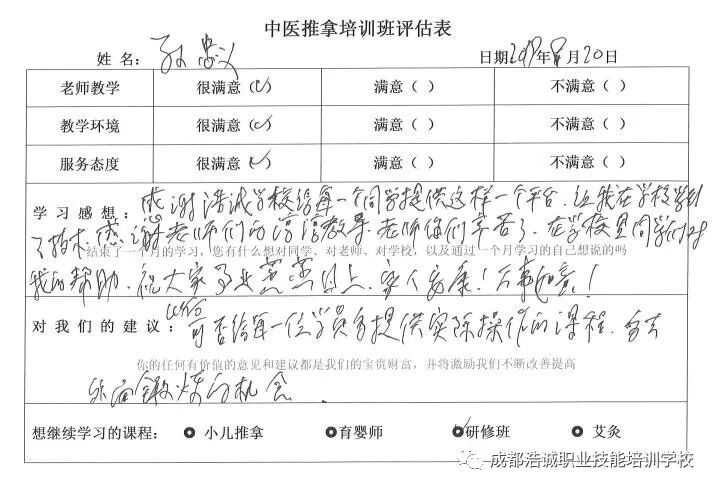 中医推拿培训班评估表
姓名： 孙忠义
日期2019年8月20日
老师教学 很满意（✓） 满意（ ） 不满意（ ）
教学环境 很满意（✓） 满意（ ） 不满意（ ）
服务态度 很满意（✓） 满意（ ） 不满意（ ）
学习感想：感谢浩诚学校给每一个同学提供这样一个平台，让我在学校学到
了技术，感谢老师们的谆谆教导，老师你们辛苦了，在学校里同学们对
结束了一个月的学习，您有什么想对同学、对老师、对学校，以及通过一个月学习的自己想说的吗
我的帮助，祝大家事业蒸蒸日上，家人安康！万事如意！
对我们的建议： 可否给每一位学员多提供实际操作的课程，多去
你的任何有价值的意见和建议都是我们的宝贵财富，并将激励我们不断改善提高
锻炼的机会．
想继续学习的课程： 小儿推拿 育婴师 研修班 艾灸
成都浩诚职业技能培训学校